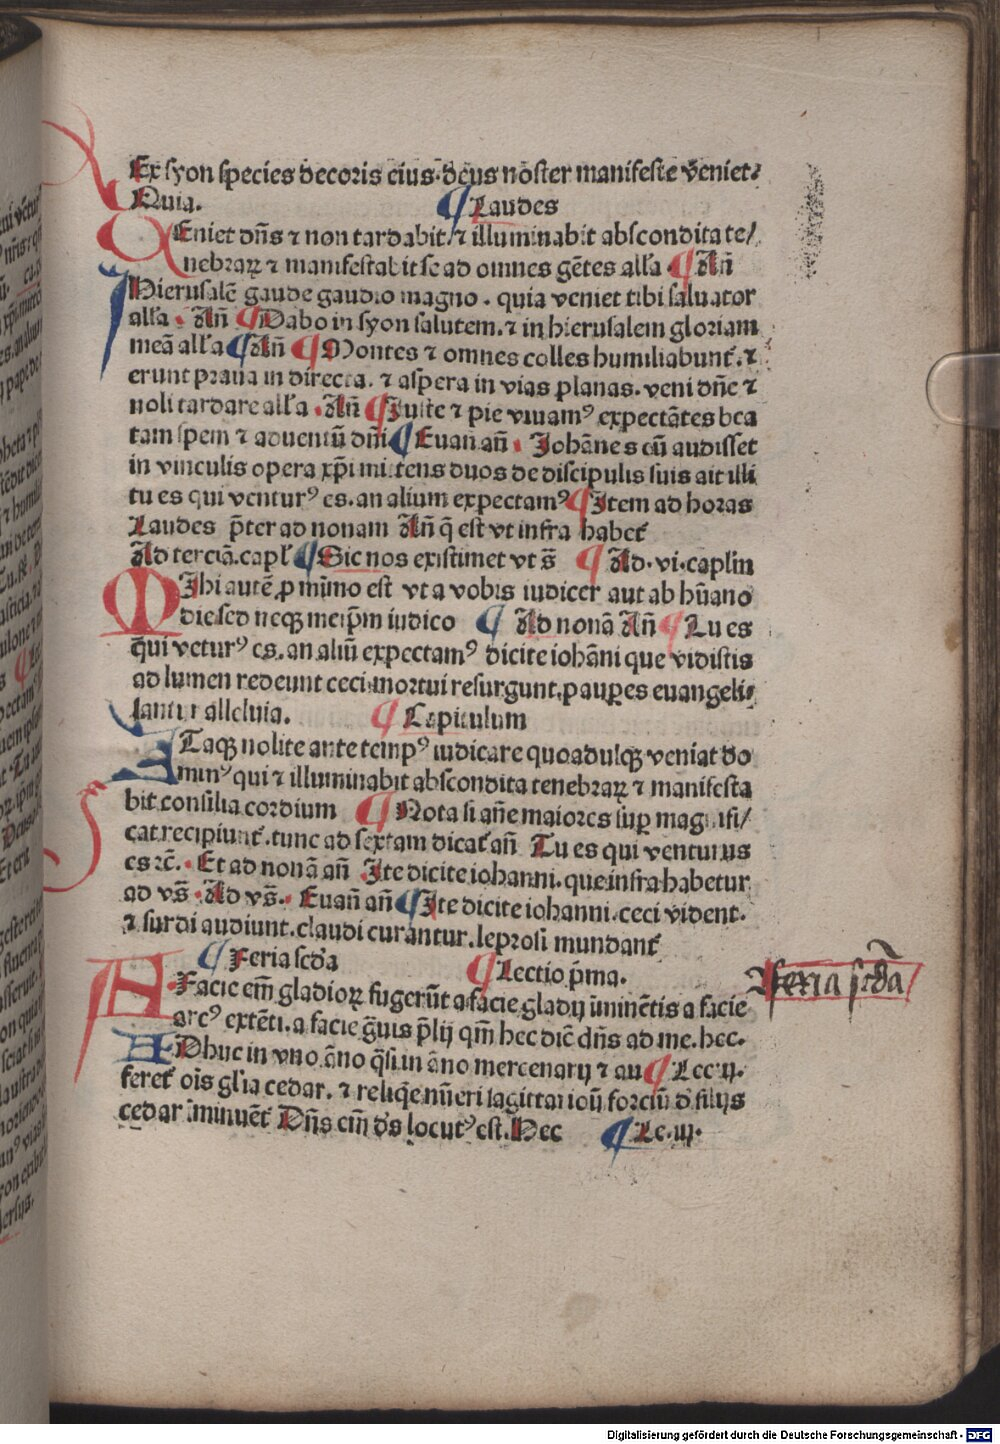 Ex syon species decoris eius. deus noster manifeste veniet.
Quia. ¶ Laudes
VEniet dn̄s ⁊ non tardabit. ⁊ illuminabit abscondita te/
nebrarꝝ ⁊ manifestabit se ad omnes gētes all'a ¶ Añ
Hierusalē gaude gaudio magno. quia veniet tibi saluator
all'a. Añ ¶ Dabo in syon salutem. ⁊ in hierusalem gloriam
meā all'a ¶ Añ ¶ Montes ⁊ omnes colles humiliabunt̄. ⁊
erunt praua in directa. ⁊ aspera in vias planas. veni dn̄e ⁊
noli tardare all'a. Añ ¶ Iuste ⁊ pie viuamꝰ expectātes bea
tam spem ⁊ aduentū dn̄i ¶ Euan añ. Johānes cū audisset
in vinculis opera xp̄i mittens duos de discipulis suis ait illi
tu es qui venturꝰ es. an alium expectamꝰ ¶ Item ad horas
Laudes p̄ter ad nonam Añ q̄ est vt infra habet̄
Ad terciā. capl' ¶ Sic nos existimet vt s̄ ¶ Ad. vi. capl'm
MIhi autē ꝓ minimo est vt a vobis iudicer aut ab hūano
die sed neqꝫ meip̄m iudico ¶ Ad nonā Añ ¶ Tu es
qui vēturꝰ es. an aliū expectamꝰ dicite iohāni que vidistis
ad lumen redeunt ceci. mortui resurgunt. pauꝑes euangeli/
santur alleluia. ¶ Capitulum
ITaqꝫ nolite ante tempꝰ iudicare quoadusqꝫ veniat do
minꝰ qui ⁊ illuminabit abscondita tenebrarꝝ ⁊ manifesta
bit consilia cordium ¶ Nota si añe maiores suꝑ magnifi/
cat recipiunt̄. tunc ad sextam dicat̄ añ Tu es qui venturus
es ⁊c̄. Et ad nonā añ Ite dicite iohanni. que infra habetur
ad vs̄. Ad vs̄. Euañ añ ¶ Ite dicite iohanni. ceci vident.
⁊ surdi audiunt. claudi curantur. leprosi mundant̄
¶ Feria scd̄a ¶ Lectio p̄ma.
A Facie em̄ gladiorꝝ fugerūt a facie gladij īminētis a facie
arcꝰ extēti. a facie ḡuis p̄lij qm̄ hec dic̄ dn̄s ad me. hec.
ADhuc in vno āno q̄si in āno mercenarij ⁊ au ¶ Lec. ij.
feret̄ oīs gl'ia cedar. ⁊ reliq̄e nūeri sagittarioū forciū d̄ filijs
cedar īminuēt̄ Dn̄s em̄ d̄s locutꝰ est. Hec ¶ Le. iij.
Feria scd̄a
Digitalisierung gefördert durch die Deutsche Forschungsgemeinschaft - DFG